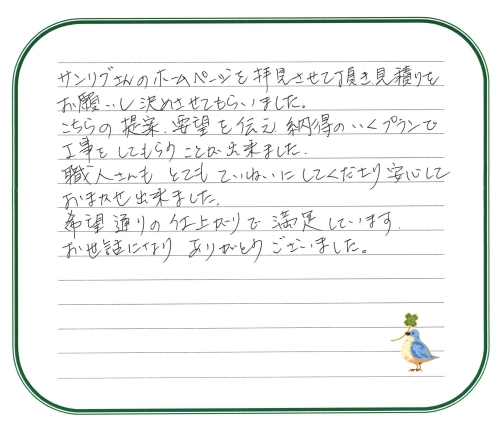 サンリブさんのホームページを拝見させて頂き、見積りを
お願いし決めさせてもらいました。
こちらの提案、要望を伝え、納得のいくプランで
工事をしてもらうことが出来ました。
職人さんも とても ていねいにしてくださり安心して
おまかせ出来ました。
希望通りの仕上がりで 満足しています。
お世話になり ありがとうございました。